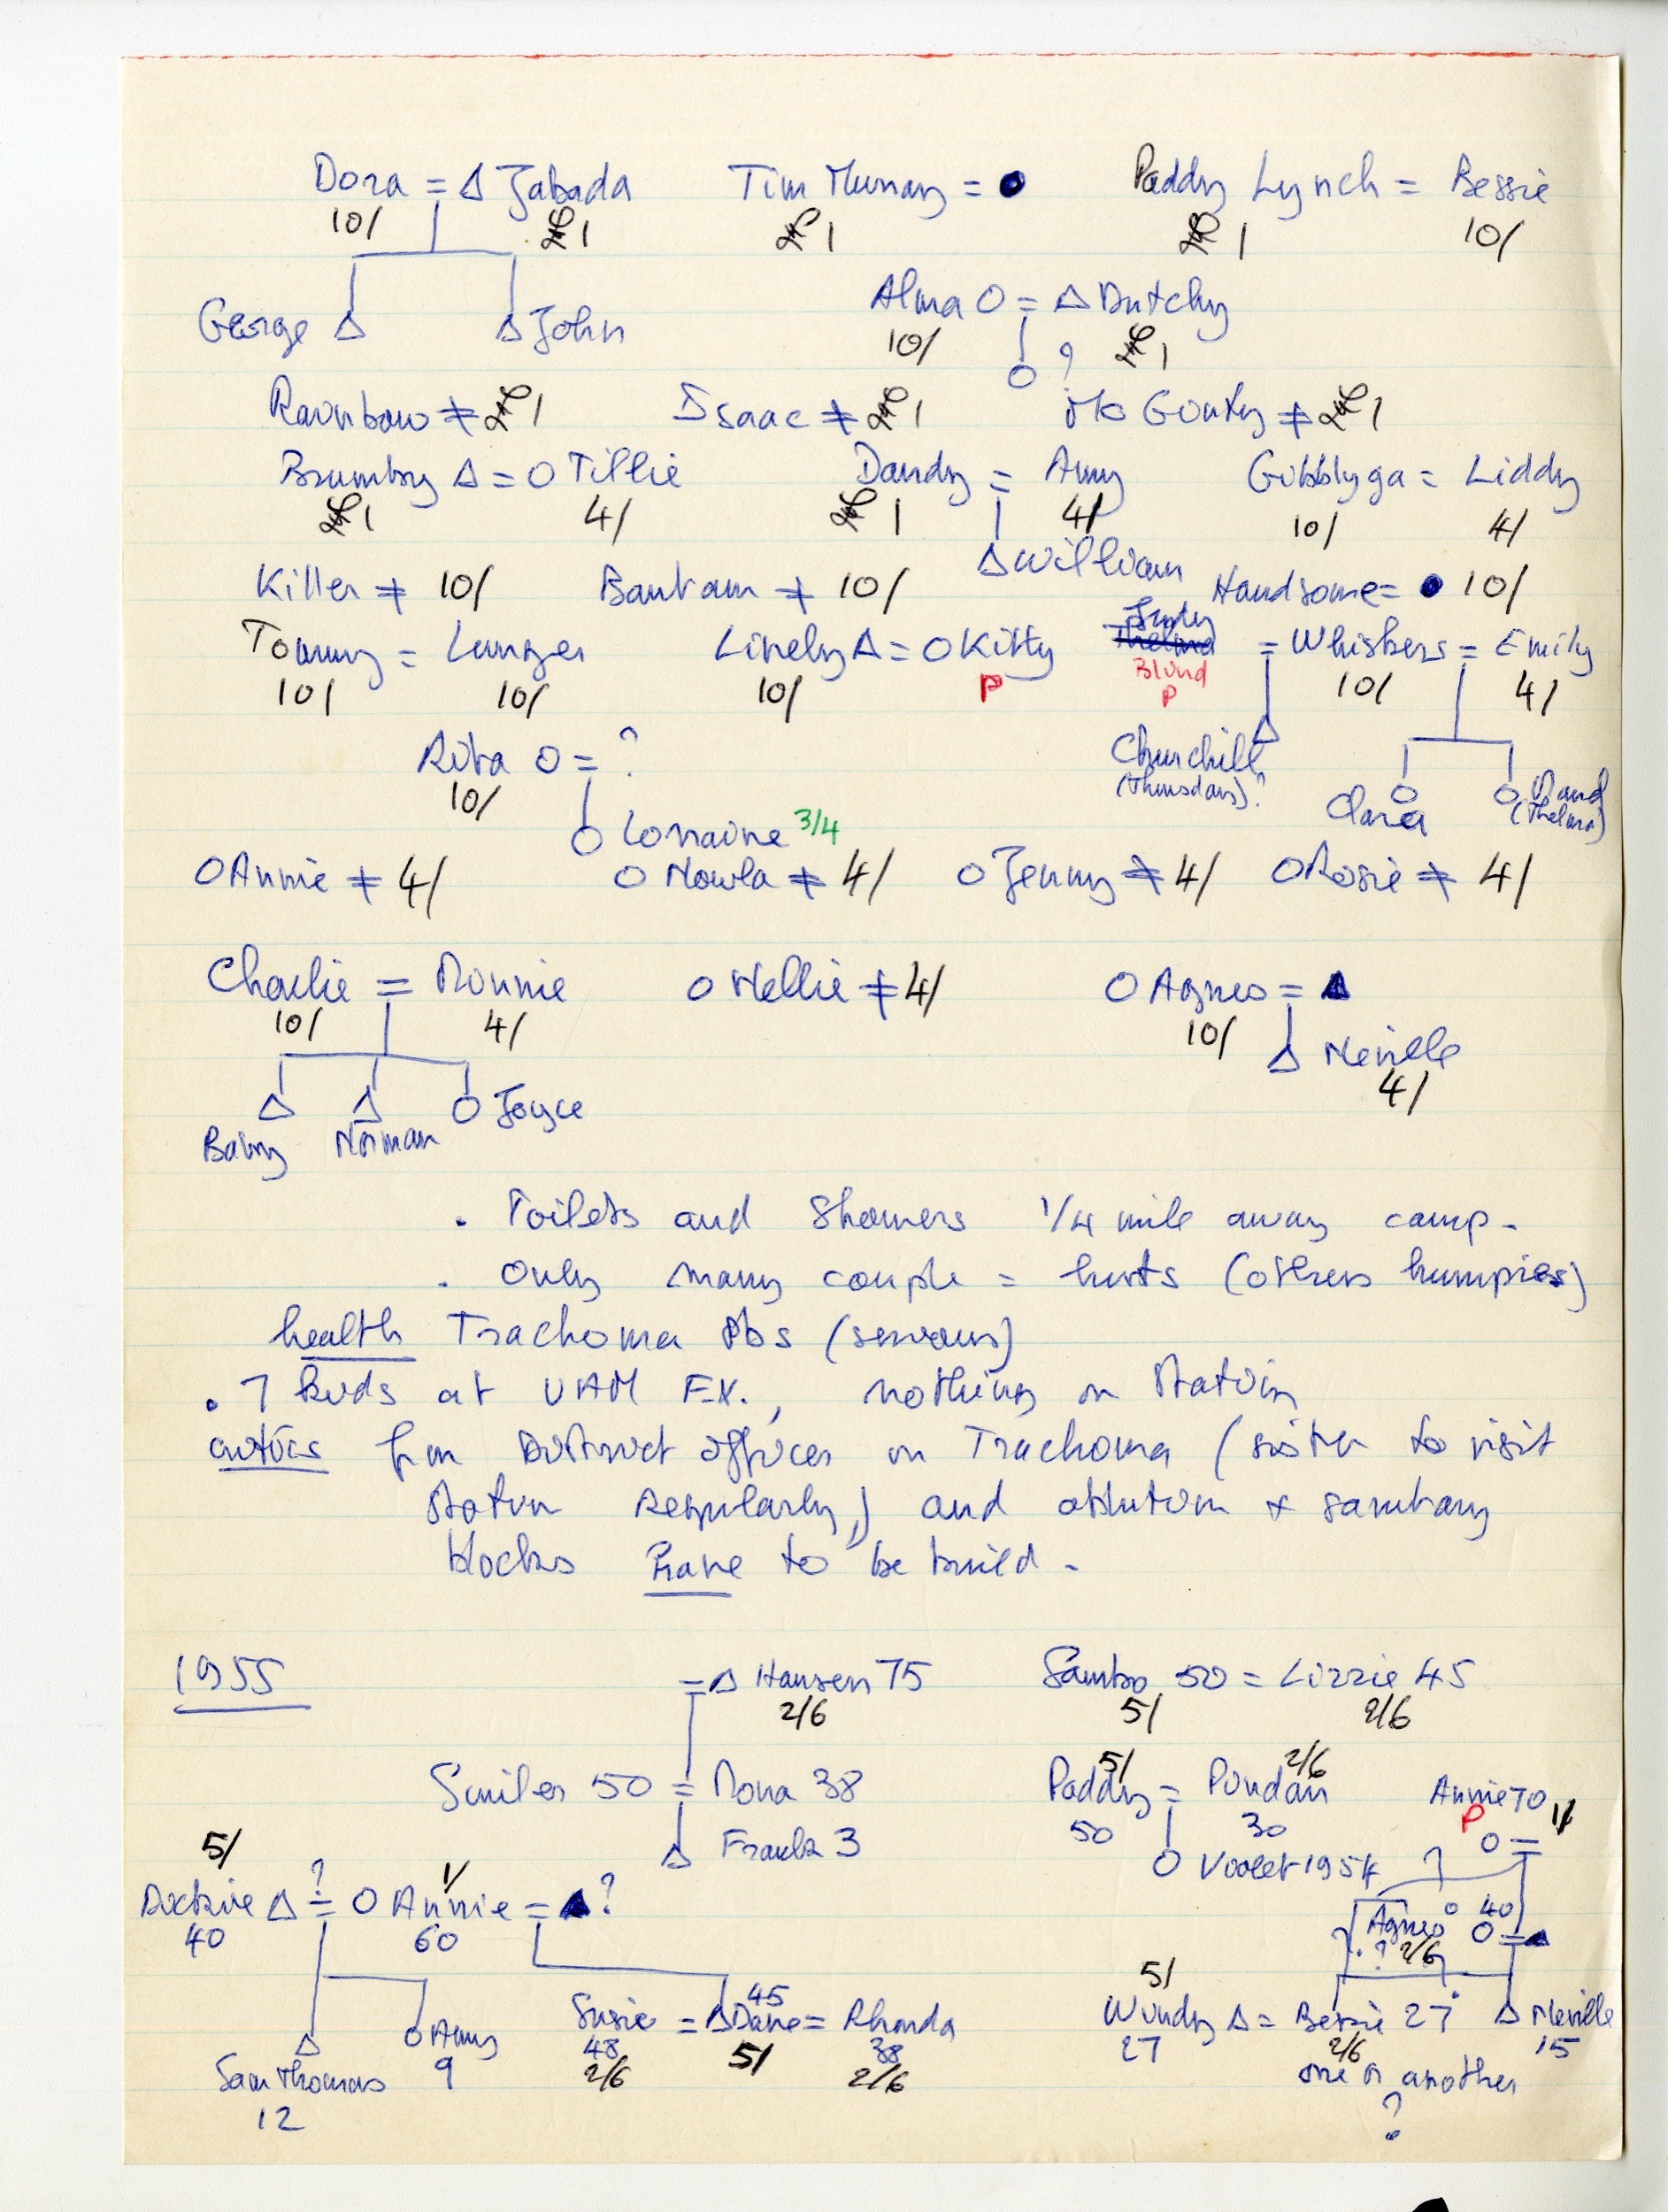 Dora = Δ Jabada   Tim Murray = ●   Paddy Lynch = Bessie
10/   1   1   1   10/
Alma O = Δ Dutchy
George Δ   Δ John   10/   O ?   1
Rainbow ≠ 1   Isaac ≠ 1   Gouty ≠ 1
Brumby Δ = O Tillie   Dandy = Amy   Gibblyga = Liddy
1   4/   1   4/   10/   4/
Δ William
Killer ≠ 10/   Bantam ≠ 10/   Handsome = ● 10/
Judy
Tommy = Lunger   Lively Δ = O Kitty   Thelma = Whiskers = Emily
10/   10/   10/   P   Blind   10/   4/
P
Rita O = ?   Churchill Δ
10/   (Thursday)?   O   O Maud
Clara   (Thelma)
O Lorraine 3/4
O Annie ≠ 4/   O Nowla ≠ 4/   O Jenny ≠ 4/   O Rosie ≠ 4/
Charlie = Minnie   O Nellie ≠ 4/   O Agnes = ▲
10/   4/   10/   Δ Neville
4/
Δ   Δ   O Joyce
Baby   Norman
. Toilets and Showers 1/4 mile away camp -
. Only many couple = huts (others humpies)
health Trachoma Pbs (serious)
. 7 kids at UAM F.X., nothing on Station
critics from District officer on Trachoma (sister to visit
Station regularly,) and ablution & sanitary
blocks have to be build -
1955   = Δ Hansen 75   Sambo 50 = Lizzie 45
2/6   5/   2/6
5/   2/6
Smiler 50 = Mona 38   Paddy = Pindan   Annie 70 1/
50   30   P
Δ Frank 3   O Violet 1954   ?   O =
5/   ?   1/
Δ = O Annie = ▲ ?   Agnes O   40
40   60   ? 2/6   O = ▲
45   5/
Susie = Δ Dave = Rhonda   Windy Δ = Bessie 27   Δ Neville
Δ   O Amy   48   5/   38   27   2/6   15
Sam Thomas   9   2/6   2/6   one or another
12   ?